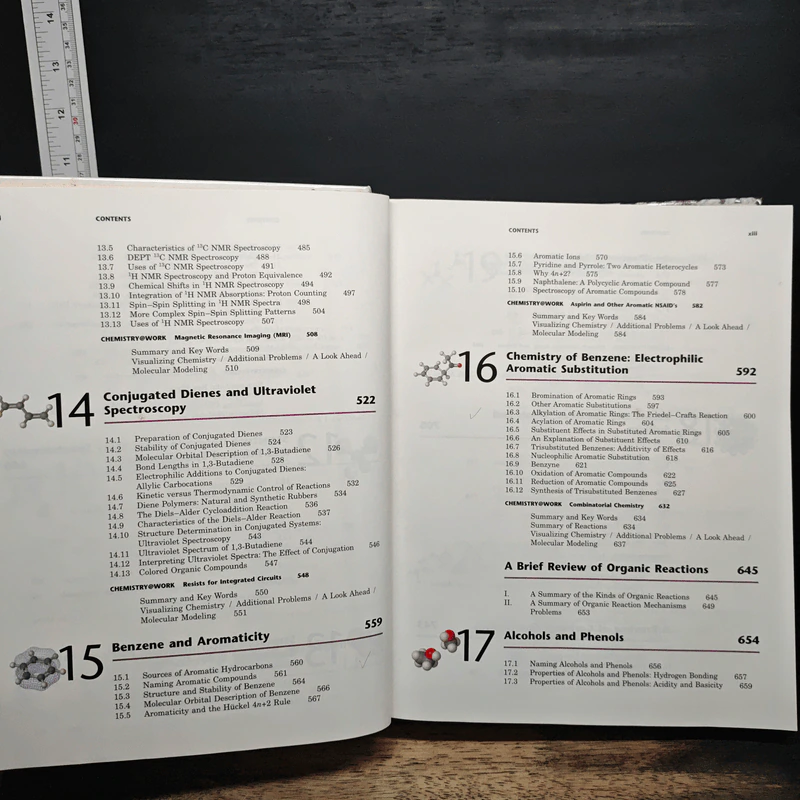 14
13
12
11
CONTENTS
13.5 Characteristics of ¹³C NMR Spectroscopy 485
13.6 DEPT ¹³C NMR Spectroscopy 488
13.7 Uses of ¹³C NMR Spectroscopy 491
13.8 ¹H NMR Spectroscopy and Proton Equivalence 492
13.9 Chemical Shifts in ¹H NMR Spectroscopy 494
13.10 Integration of ¹H NMR Absorptions: Proton Counting 497
13.11 Spin–Spin Splitting in ¹H NMR Spectra 498
13.12 More Complex Spin–Spin Splitting Patterns 504
13.13 Uses of ¹H NMR Spectroscopy 507
CHEMISTRY@WORK Magnetic Resonance Imaging (MRI) 508
Summary and Key Words 509
Visualizing Chemistry / Additional Problems / A Look Ahead /
Molecular Modeling 510
14 Conjugated Dienes and Ultraviolet
Spectroscopy 522
14.1 Preparation of Conjugated Dienes 523
14.2 Stability of Conjugated Dienes 524
14.3 Molecular Orbital Description of 1,3-Butadiene 526
14.4 Bond Lengths in 1,3-Butadiene 528
14.5 Electrophilic Additions to Conjugated Dienes:
Allylic Carbocations 529
14.6 Kinetic versus Thermodynamic Control of Reactions 532
14.7 Diene Polymers: Natural and Synthetic Rubbers 534
14.8 The Diels–Alder Cycloaddition Reaction 536
14.9 Characteristics of the Diels–Alder Reaction 537
14.10 Structure Determination in Conjugated Systems:
Ultraviolet Spectroscopy 543
14.11 Ultraviolet Spectrum of 1,3-Butadiene 544
14.12 Interpreting Ultraviolet Spectra: The Effect of Conjugation 546
14.13 Colored Organic Compounds 547
CHEMISTRY@WORK Resists for Integrated Circuits 548
Summary and Key Words 550
Visualizing Chemistry / Additional Problems / A Look Ahead /
Molecular Modeling 551
15 Benzene and Aromaticity 559
15.1 Sources of Aromatic Hydrocarbons 560
15.2 Naming Aromatic Compounds 561
15.3 Structure and Stability of Benzene 564
15.4 Molecular Orbital Description of Benzene 566
15.5 Aromaticity and the Hückel 4n+2 Rule 567
CONTENTS xiii
15.6 Aromatic Ions 570
15.7 Pyridine and Pyrrole: Two Aromatic Heterocycles 573
15.8 Why 4n+2? 575
15.9 Naphthalene: A Polycyclic Aromatic Compound 577
15.10 Spectroscopy of Aromatic Compounds 578
CHEMISTRY@WORK Aspirin and Other Aromatic NSAID's 582
Summary and Key Words 584
Visualizing Chemistry / Additional Problems / A Look Ahead /
Molecular Modeling 584
16 Chemistry of Benzene: Electrophilic
Aromatic Substitution 592
16.1 Bromination of Aromatic Rings 593
16.2 Other Aromatic Substitutions 597
16.3 Alkylation of Aromatic Rings: The Friedel–Crafts Reaction 600
16.4 Acylation of Aromatic Rings 604
16.5 Substituent Effects in Substituted Aromatic Rings 605
16.6 An Explanation of Substituent Effects 610
16.7 Trisubstituted Benzenes: Additivity of Effects 616
16.8 Nucleophilic Aromatic Substitution 618
16.9 Benzyne 621
16.10 Oxidation of Aromatic Compounds 622
16.11 Reduction of Aromatic Compounds 625
16.12 Synthesis of Trisubstituted Benzenes 627
CHEMISTRY@WORK Combinatorial Chemistry 632
Summary and Key Words 634
Summary of Reactions 634
Visualizing Chemistry / Additional Problems / A Look Ahead /
Molecular Modeling 637
A Brief Review of Organic Reactions 645
I. A Summary of the Kinds of Organic Reactions 645
II. A Summary of Organic Reaction Mechanisms 649
Problems 653
17 Alcohols and Phenols 654
17.1 Naming Alcohols and Phenols 656
17.2 Properties of Alcohols and Phenols: Hydrogen Bonding 657
17.3 Properties of Alcohols and Phenols: Acidity and Basicity 659